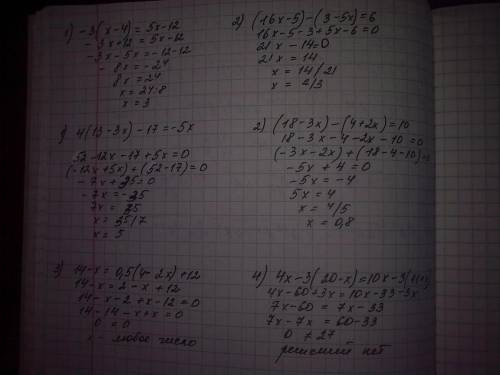 1) -3(x-4) = 5x-12
-3x+12 = 5x-12
-3x-5x = -12-12
-8x = -24
8x = 24
x = 24:8
x = 3
2) (16x-5)-(3-5x)=6
16x-5-3+5x-6=0
21x-14=0
21x = 14
x = 14/21
x = 2/3
1) 4(13-3x)-17=-5x
52-12x-17+5x=0
(-12x+5x)+(52-17)=0
-7x+35=0
-7x=-35
7x = 35
x = 35/7
x = 5
2) (18-3x)-(4+2x)=10
18-3x-4-2x-10=0
(-3x-2x)+(18-4-10)=0
-5x+4=0
-5x=-4
5x=4
x=4/5
x = 0,8
3) 14-x=0,5(4-2x)+12
14-x=2-x+12
14-x-2+x-12=0
14-14-x+x=0
0=0
x - любое число
4) 4x-3(20-x)=10x-3(11+x)
4x-60+3x=10x-33-3x
7x-60=7x-33
7x-7x=60-33
0≠27
решений нет